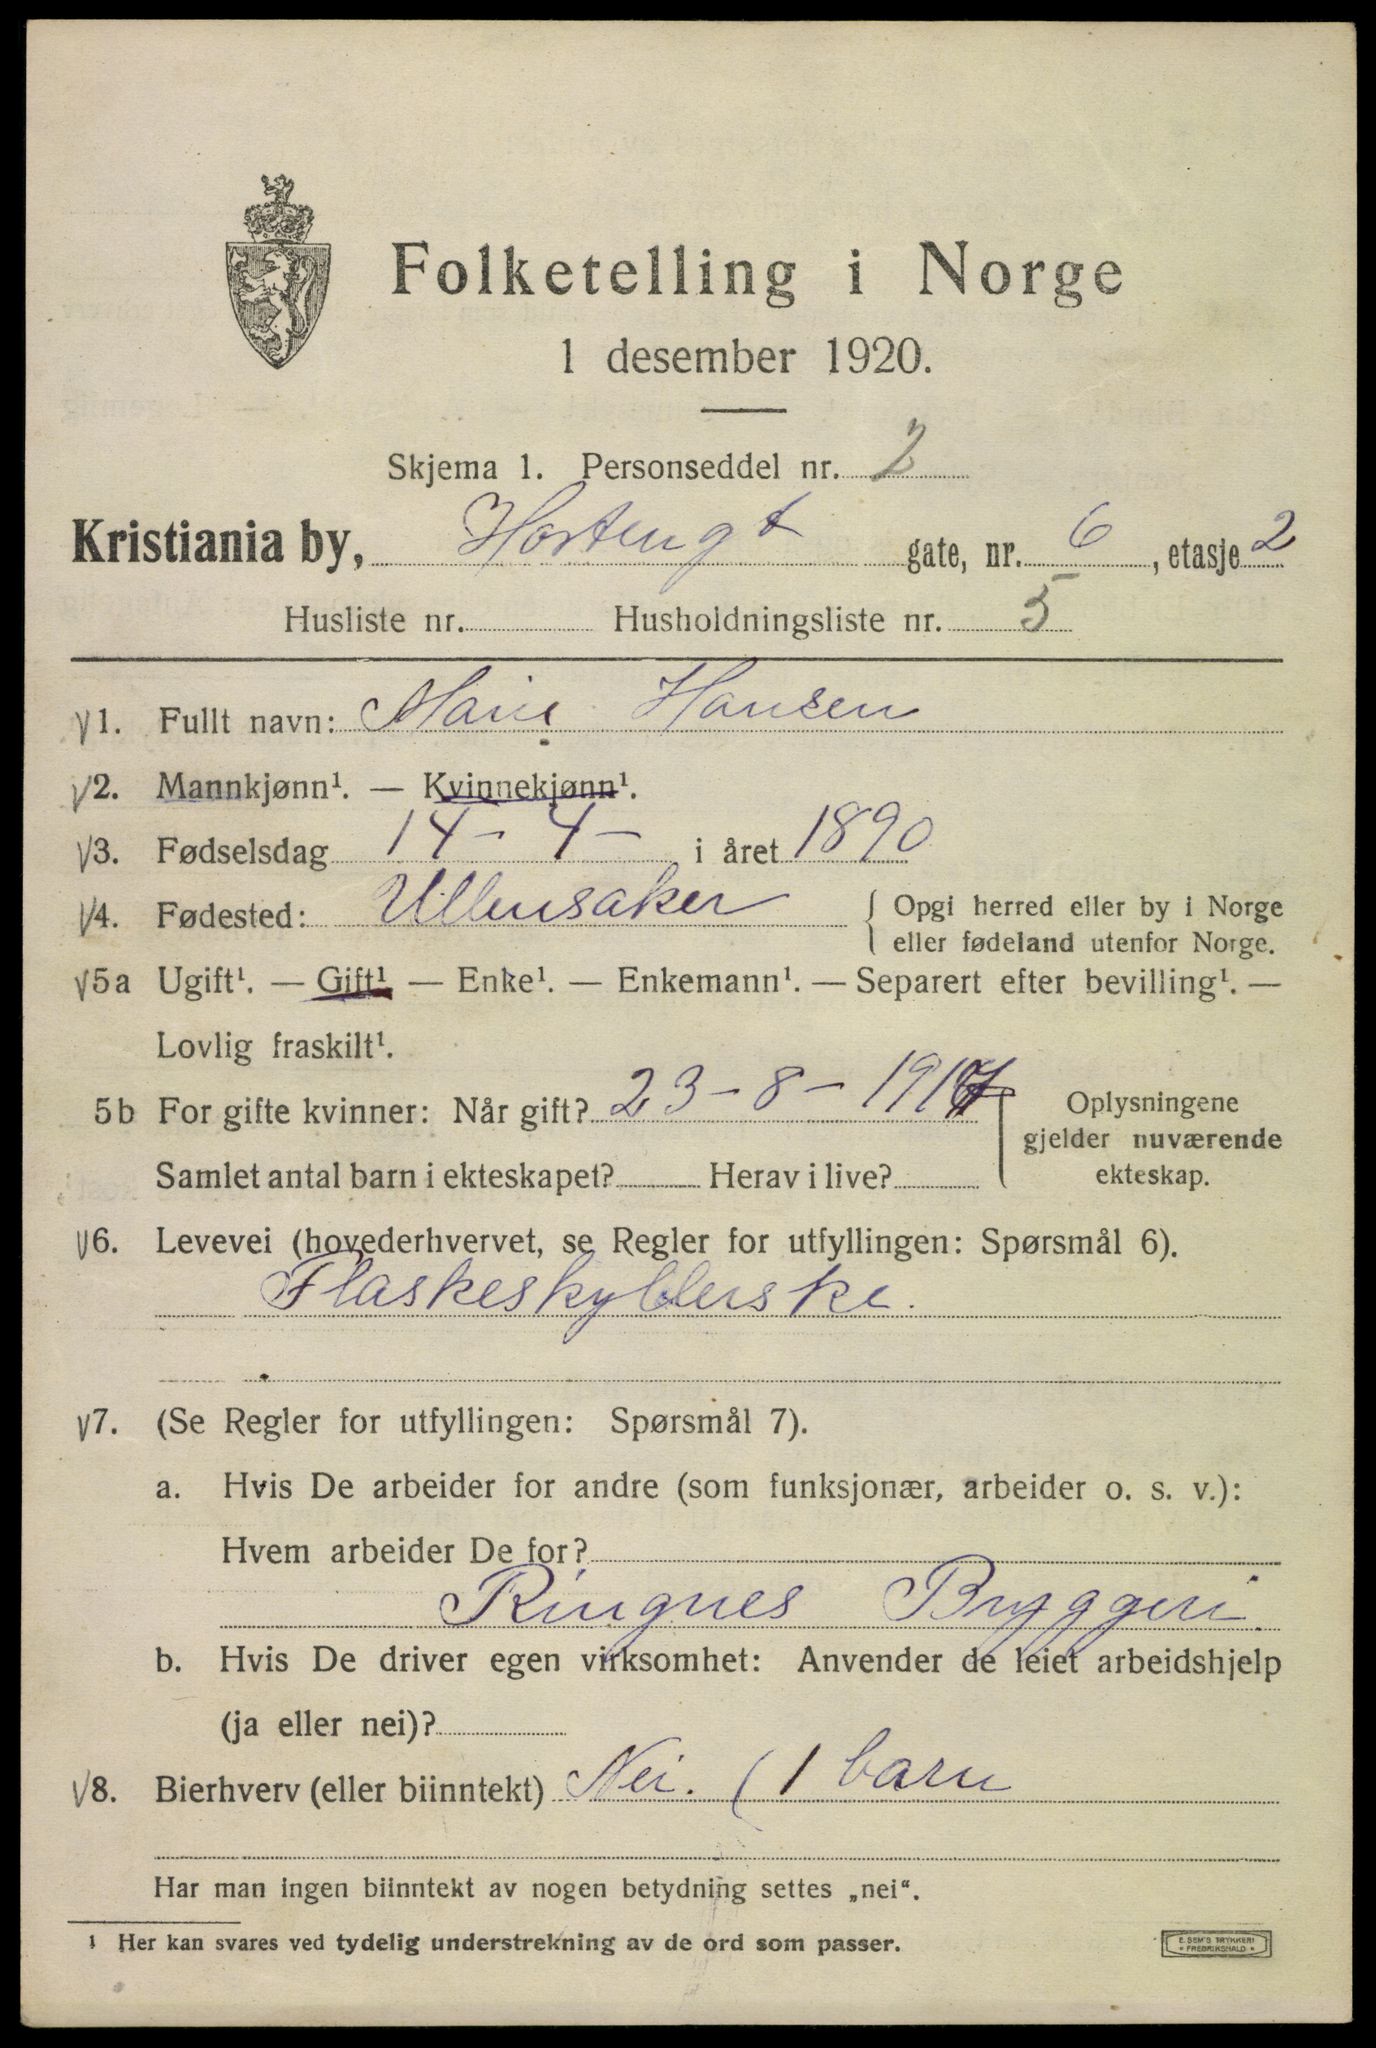 Folketelling i Norge
1 desember 1920.
Skjema 1. Personseddel nr. 2
Kristiania by, Hortengt gate, nr. 6, etasje 2
Husliste nr. Husholdningsliste nr. 5
V1. Fullt navn: Marie Hansen
V2. Mannkjønn¹. — Kvinnekjønn¹.
V3. Fødselsdag 14 - 4 - i året 1890
V4. Fødested: Ullensaker { Opgi herred eller by i Norge
eller fødeland utenfor Norge.
V5a Ugift¹. — Gift¹ — Enke¹. — Enkemann¹. — Separert efter bevilling¹. —
Lovlig fraskilt¹.
5b For gifte kvinner: Når gift? 23 - 8 - 1917 Oplysningene
gjelder nuværende
Samlet antal barn i ekteskapet? Herav i live? ekteskap.
V6. Levevei (hovederhvervet, se Regler for utfyllingen: Spørsmål 6).
Flaskeskyllerske.
V7. (Se Regler for utfyllingen: Spørsmål 7).
a. Hvis De arbeider for andre (som funksjonær, arbeider o. s. v.):
Hvem arbeider De for?
Ringnes Bryggeri
b. Hvis De driver egen virksomhet: Anvender de leiet arbeidshjelp
(ja eller nei)?
V8. Bierhverv (eller biinntekt) Nei. ( 1 barn
Har man ingen biinntekt av nogen betydning settes „nei“.
¹ Her kan svares ved tydelig understrekning av de ord som passer.
E. SEM'S TRYKKERI
* FREDRIKSHALD *